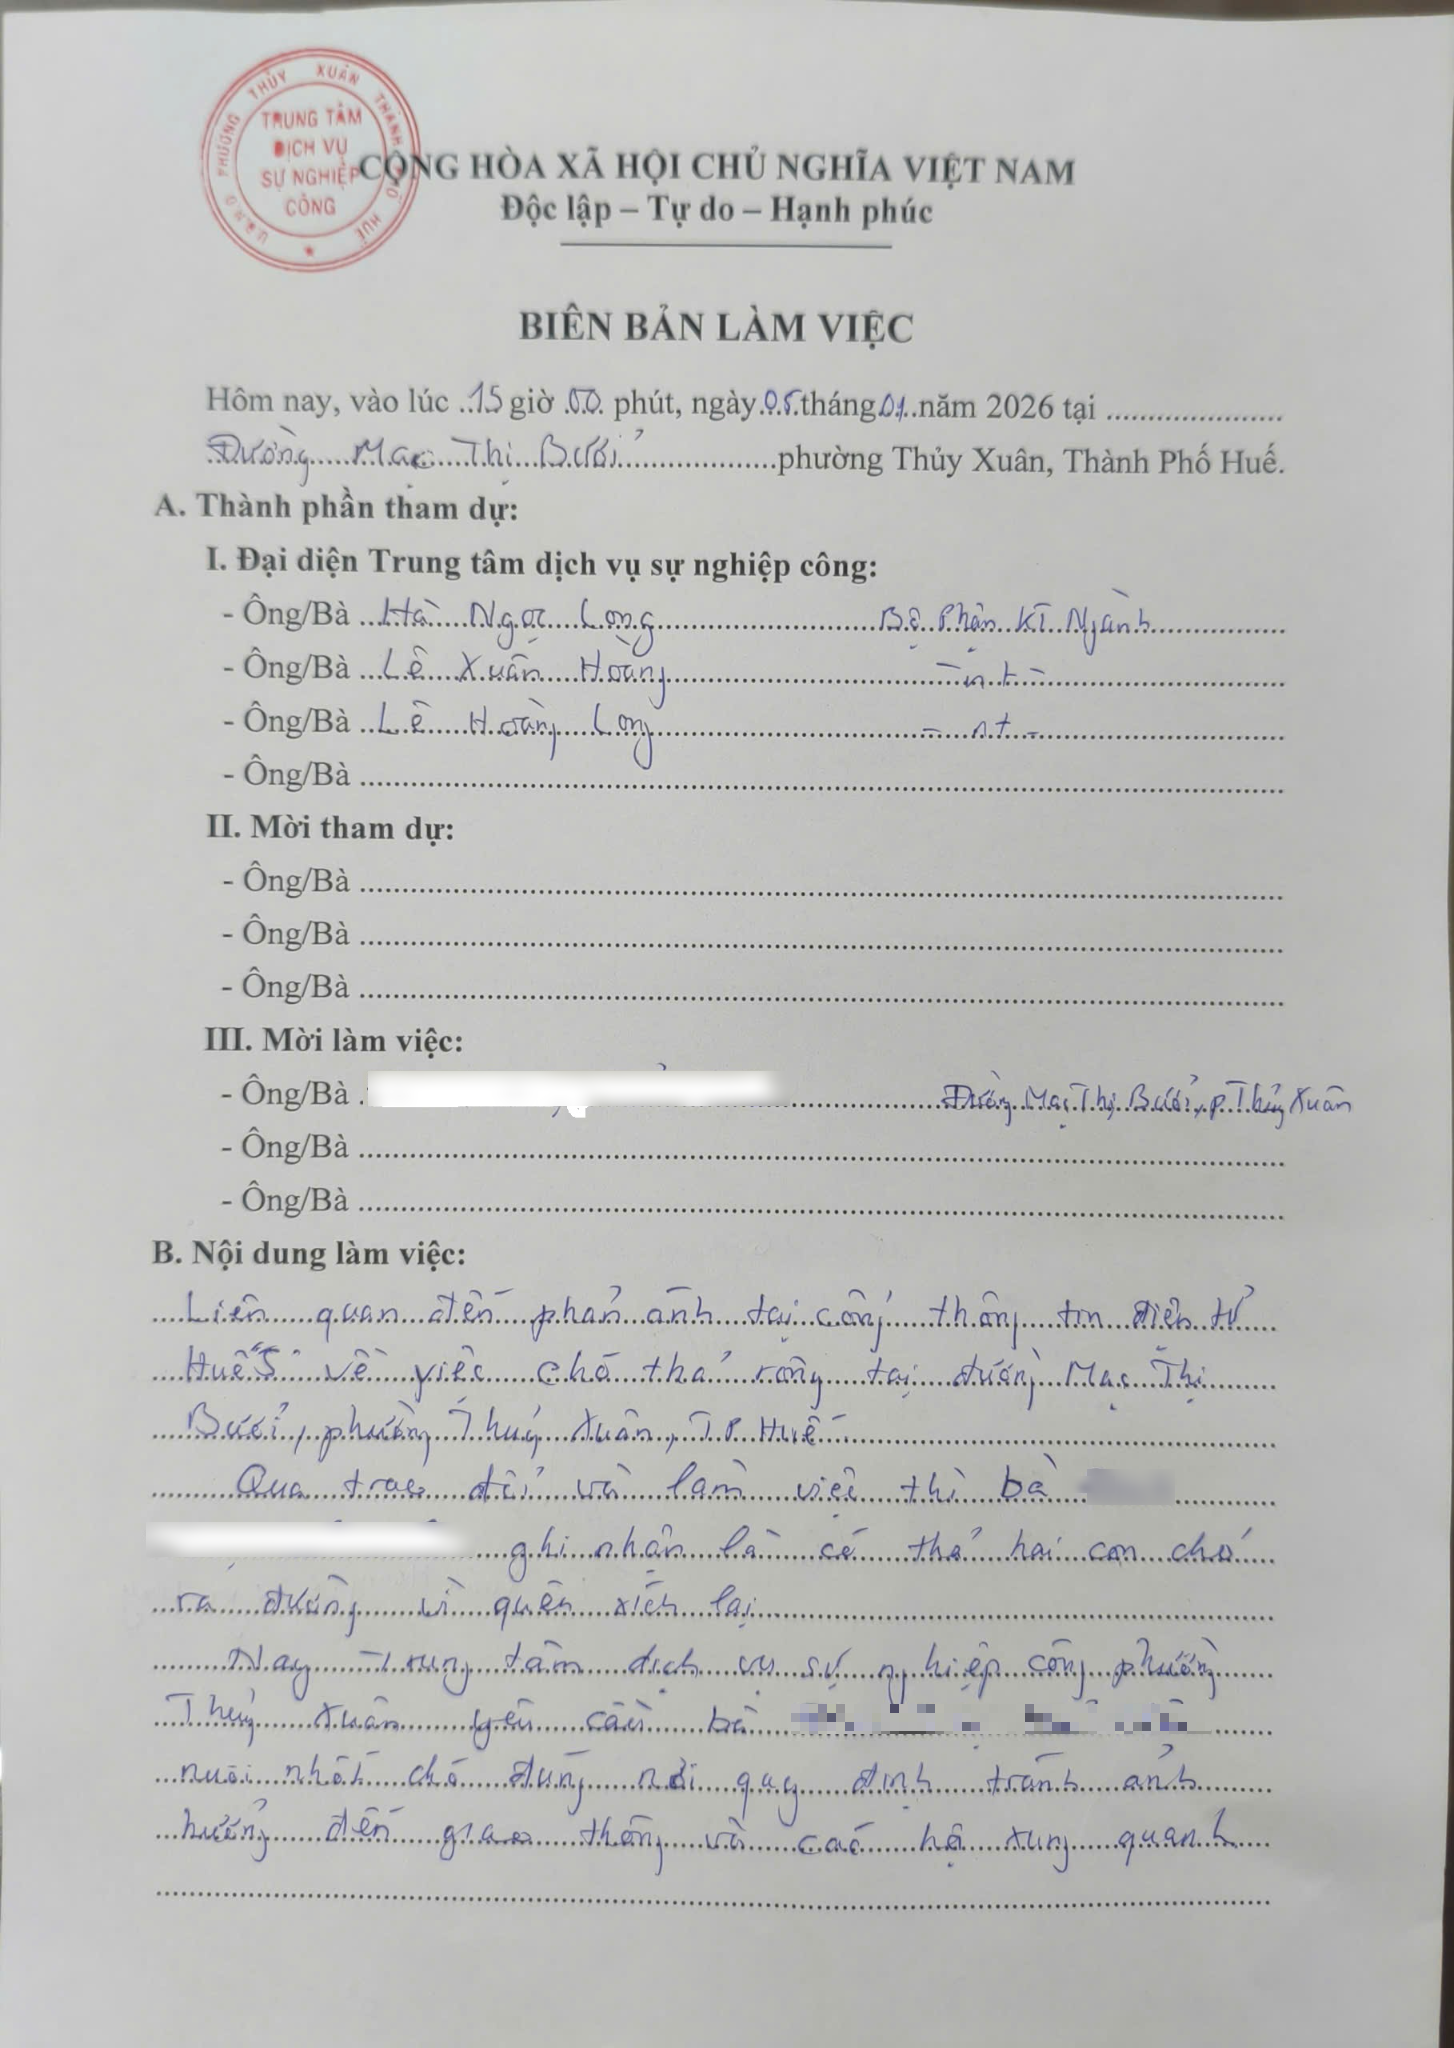 U.B.N.D PHƯỜNG THỦY XUÂN THÀNH PHỐ HUẾ
TRUNG TÂM
DỊCH VỤ
SỰ NGHIỆP
CÔNG
CỘNG HÒA XÃ HỘI CHỦ NGHĨA VIỆT NAM
Độc lập – Tự do – Hạnh phúc
BIÊN BẢN LÀM VIỆC
Hôm nay, vào lúc 15 giờ 00 phút, ngày 05 tháng 01 năm 2026 tại
Đường Mạc Thị Bưởi phường Thủy Xuân, Thành Phố Huế.
A. Thành phần tham dự:
I. Đại diện Trung tâm dịch vụ sự nghiệp công:
- Ông/Bà Hà Ngọc Long Bộ Phận Kĩ Ngành
- Ông/Bà Lê Xuân Hoàng - nt -
- Ông/Bà Lê Hoàng Long - nt -
- Ông/Bà
II. Mời tham dự:
- Ông/Bà
- Ông/Bà
- Ông/Bà
III. Mời làm việc:
- Ông/Bà Đường Mạc Thị Bưởi, P Thủy Xuân
- Ông/Bà
- Ông/Bà
B. Nội dung làm việc:
Liên quan đến phản ánh tại cổng thông tin điện tử
Huế S về việc chó thả rông tại đường Mạc Thị
Bưởi, phường Thuỷ Xuân, TP Huế.
Qua trao đổi và làm việc thì bà
ghi nhận là có thả hai con chó
ra đường vì quên xích lại
Nay Trung tâm dịch vụ sự nghiệp công phường
Thuỷ Xuân yêu cầu bà
nuôi nhốt chó đúng nơi quy định tránh ảnh
hưởng đến giao thông và các hộ xung quanh